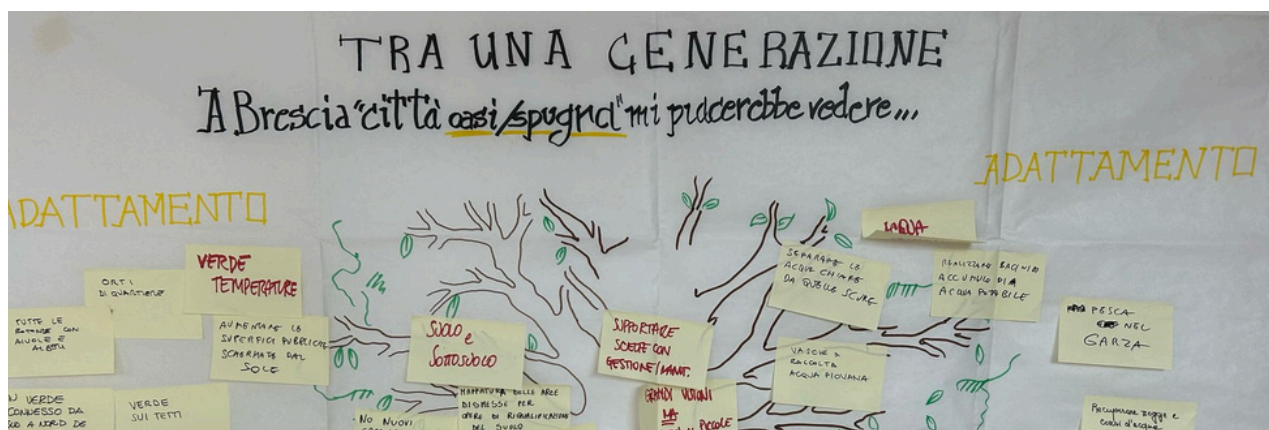 TRA UNA GENERAZIONE
A Brescia "città oasi/spugna" mi piacerebbe vedere...
ADATTAMENTO
ADATTAMENTO
VERDE
TEMPERATURE
ORTI
DI QUARTIERE
TUTTE LE
ROTONDE CON
AIUOLE E
ALBERI
AUMENTARE LE
SUPERFICI PUBBLICHE
SCHERMATE DAL
SOLE
VERDE
CONNESSO DA
A NORD DE
VERDE
SUI TETTI
SUOLO
e
SOTTOSUOLO
NO NUOVI
MAPPATURA DELLE AREE
DISMESSE PER
OPERE DI RIQUALIFICAZIONE
DEL SUOLO
SUPPORTARE
SCELTE CON
GESTIONE/MANUT.
GRANDI VISIONI
MA
PICCOLE
ACQUA
SEPARARE LE
ACQUE CHIARE
DA QUELLE SCURE
REALIZZARE BACINI DI
ACCUMULO DI
ACQUA POTABILE
VASCHE A
RACCOLTA
ACQUA PIOVANA
PESCA
NEL
GARZA
Recuperare rogge e
corsi d'acqua